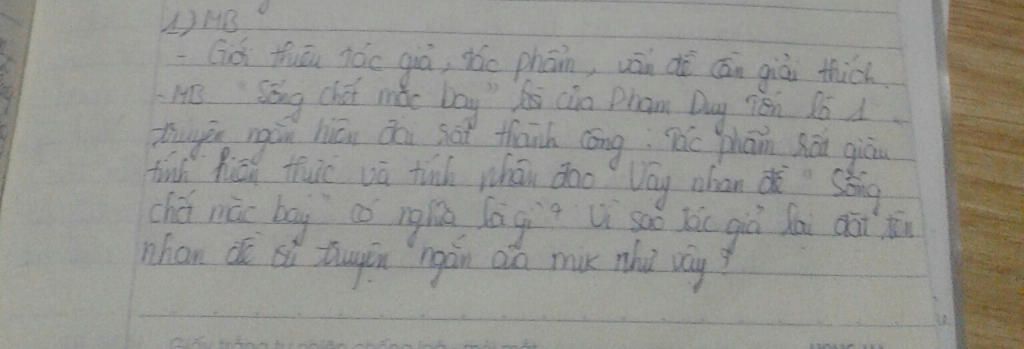 1) MB
- Giới thiệu tác giả, tác phẩm, vấn đề cần giải thích
- MB "Sống chết mặc bay" của Phạm Duy Tốn là 1
truyện ngắn hiện đại rất thành công. Tác phẩm rất giàu
tính hiện thực và tính nhân đạo Vậy nhan đề "Sống
chết mặc bay" có nghĩa là gì? Vì sao tác giả lại đặt tên
nhan đề truyện ngắn của mik như vậy?